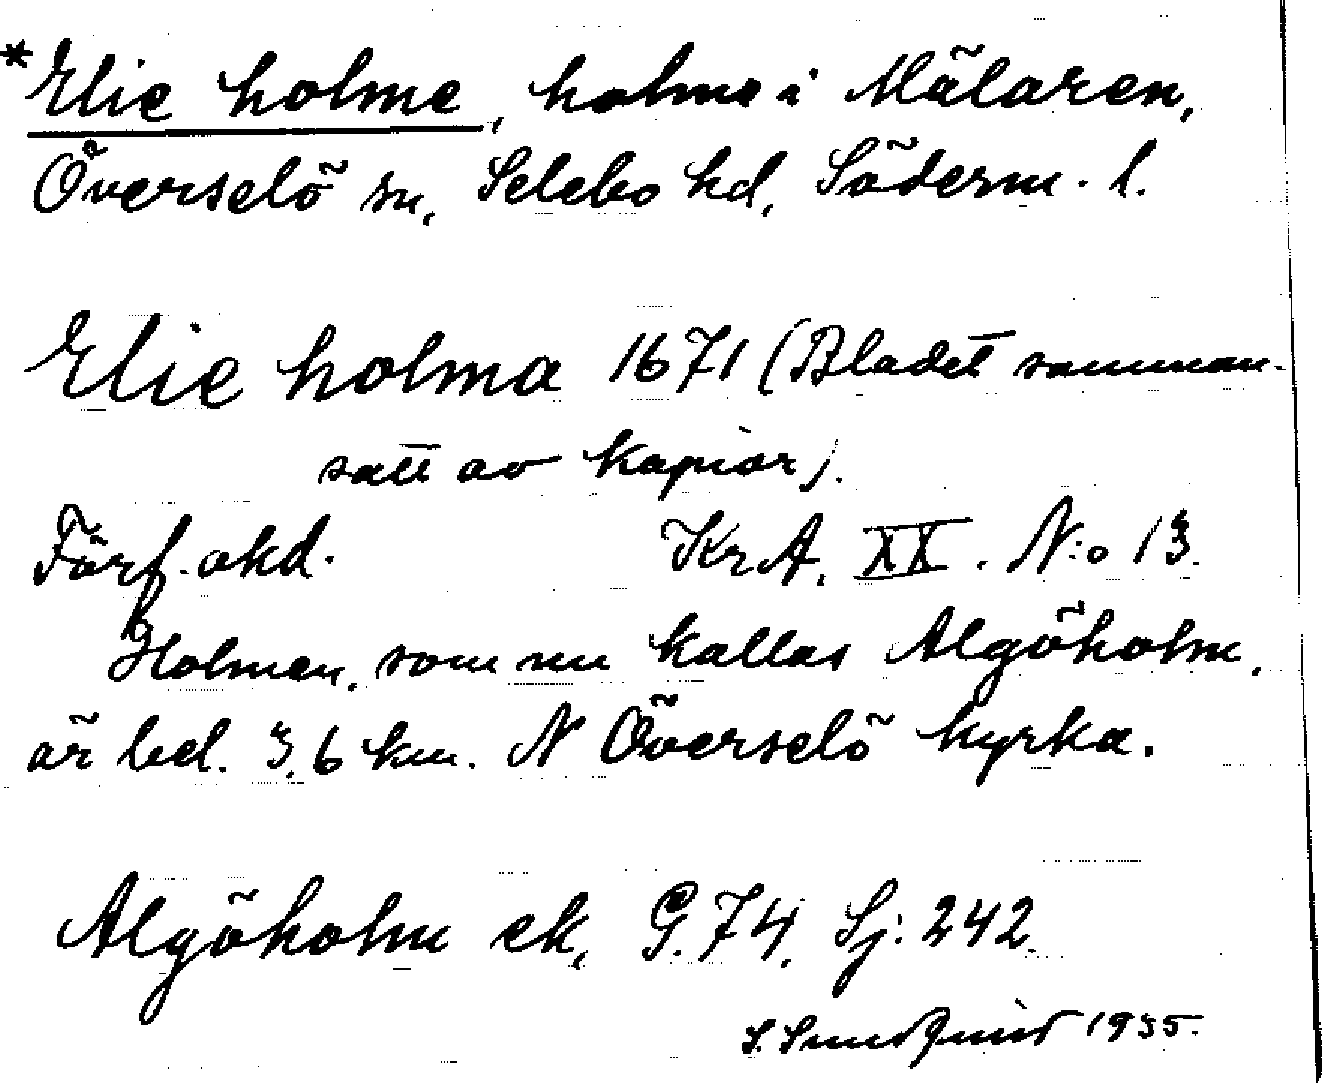 *Elie holme, holme i Mälaren,
Överselö sn, Selebo hd, Söderm. l.
Elie holma 1671 (Bladet samman-
satt av kopior).
Förf. okd. Kr.A. XX. N:o 13.
Holmen, som nu kallas Algöholm,
är bel. 3,6 km. N Överselö kyrka.
Algöholm ek, G. 74, Sj: 242.
S. Sundquist 1935.